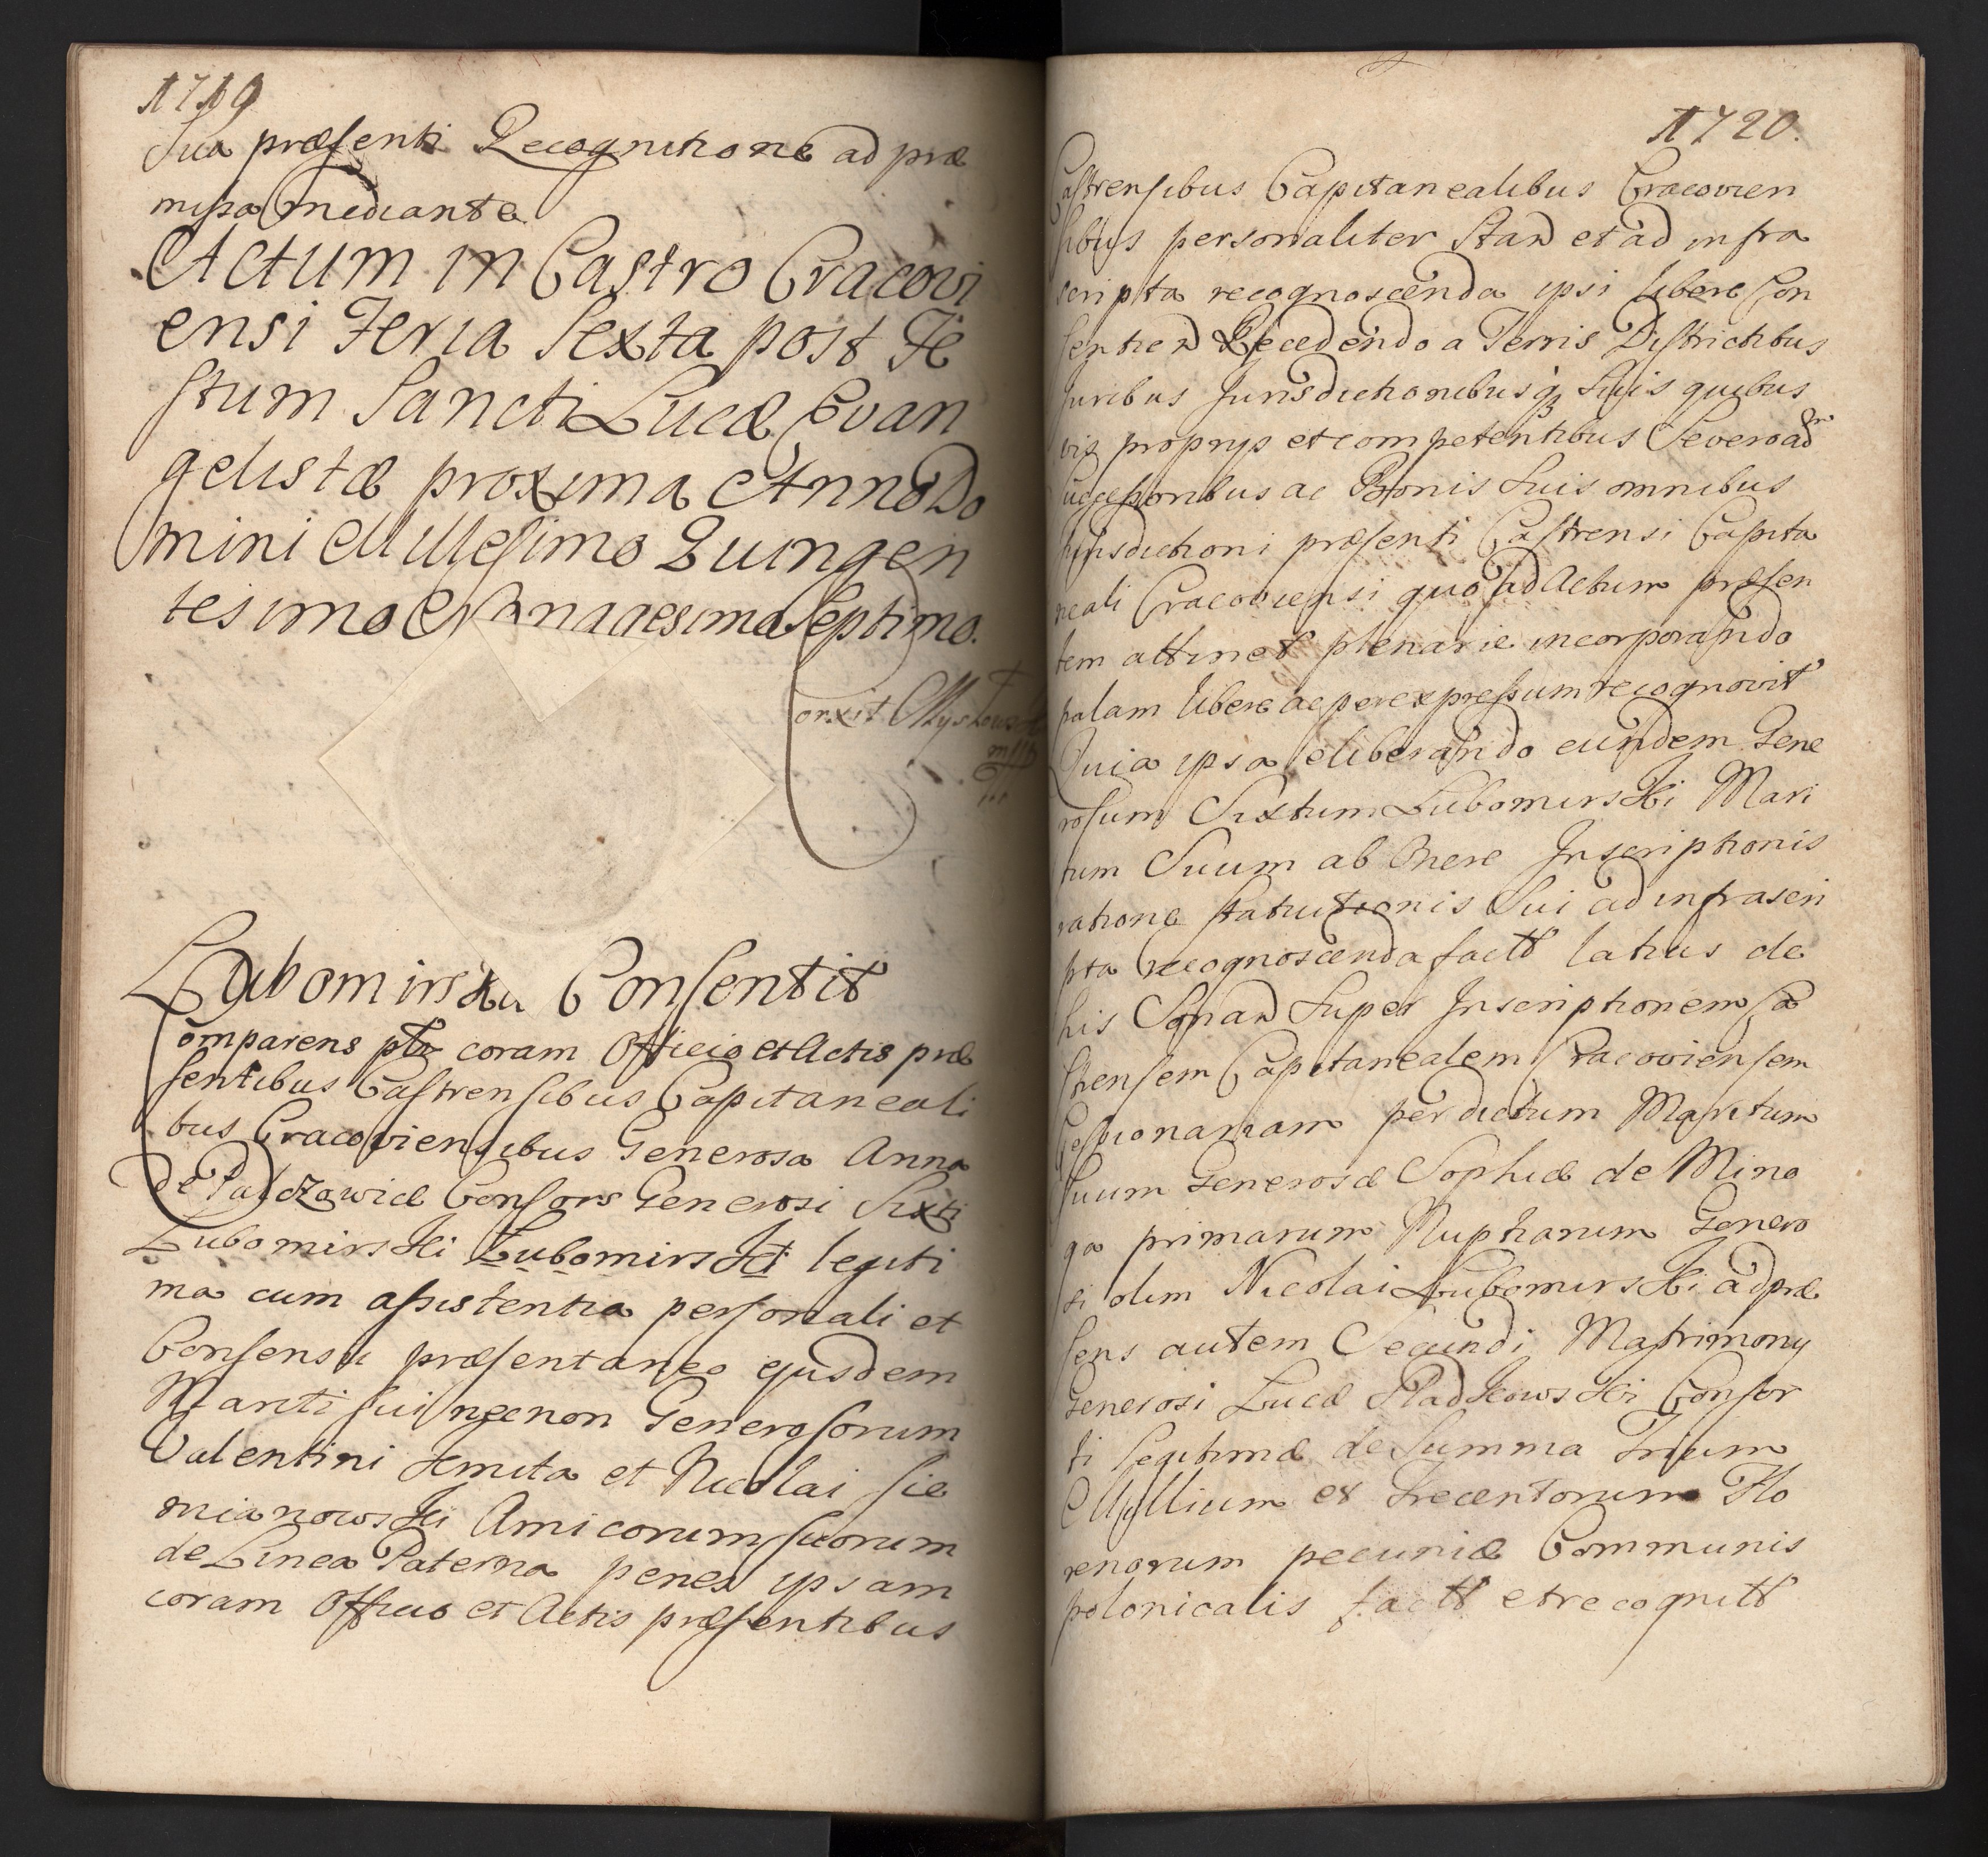 1719
Sua præsenti Recognitione ad præ
missa mediante
Actum in Castro Cracovi
ensi Feria Sexta post Fe
stum Sancti Lucæ Evan
gelistæ proxima Anno Do
mini Millesimo Quingen
tesimo Nonagesimo Septimo.
Lubomirska Consentit
Comparens ptr coram Officio et Actis præ
sentibus Castrensibus Capitaneali
bus Cracoviensibus Generosa Anna
de Consors Generosi Sixti
Lubomirski Lubomirski legiti
ma cum assistentia personali et
Consensu præsentaneo ejusdem
Mariti sui necnon Generosorum
Valentini Kmita et Nicolai Sie
mianowski Amicorum suorum
de Linea Paterna penes ipsam
coram Officio et Actis præsentibus
1720.
Castrensibus Capitanealibus Cracovien
sibus personaliter Stan et ad infra
scripta recognoscenda ipsi libere Con
sentien Recedendo a Terris Districtibus
Juribus Jurisdictionibusq3 Suis quibus
vis propriis et competentibus Se vero ac
Successoribus ac Bonis Suis omnibus
Jurisdictioni præsenti Castrensi Capita
neali Cracoviensi quo ad Actum præsen
tem attinet plenarie incorporando
palam libere ac per expressum recognovit
Quia ipsa eliberando eundem Gene
rosum Sixtum Lubomirski Mari
tum Suum ab Onere Inscriptionis
ratione statutionis Sui ad infrascri
pta recognoscenda factt latius de
his Sonan Super Inscriptionem Ca
strensem Capitanealem Cracoviensem
Cessionariam per dictum Maritum
Suum Generosæ Sophiæ de Mino
ga primarum Nuptiarum Genero
si olim Nicolai Lubomirski ad præ
sens autem Secundi Matrimony
Generosi Lucæ Consor
ti legitimæ de Summa Trium
Millium et Trecentorum Flo
renorum pecuniæ Communis
polonicalis factt et recognitt